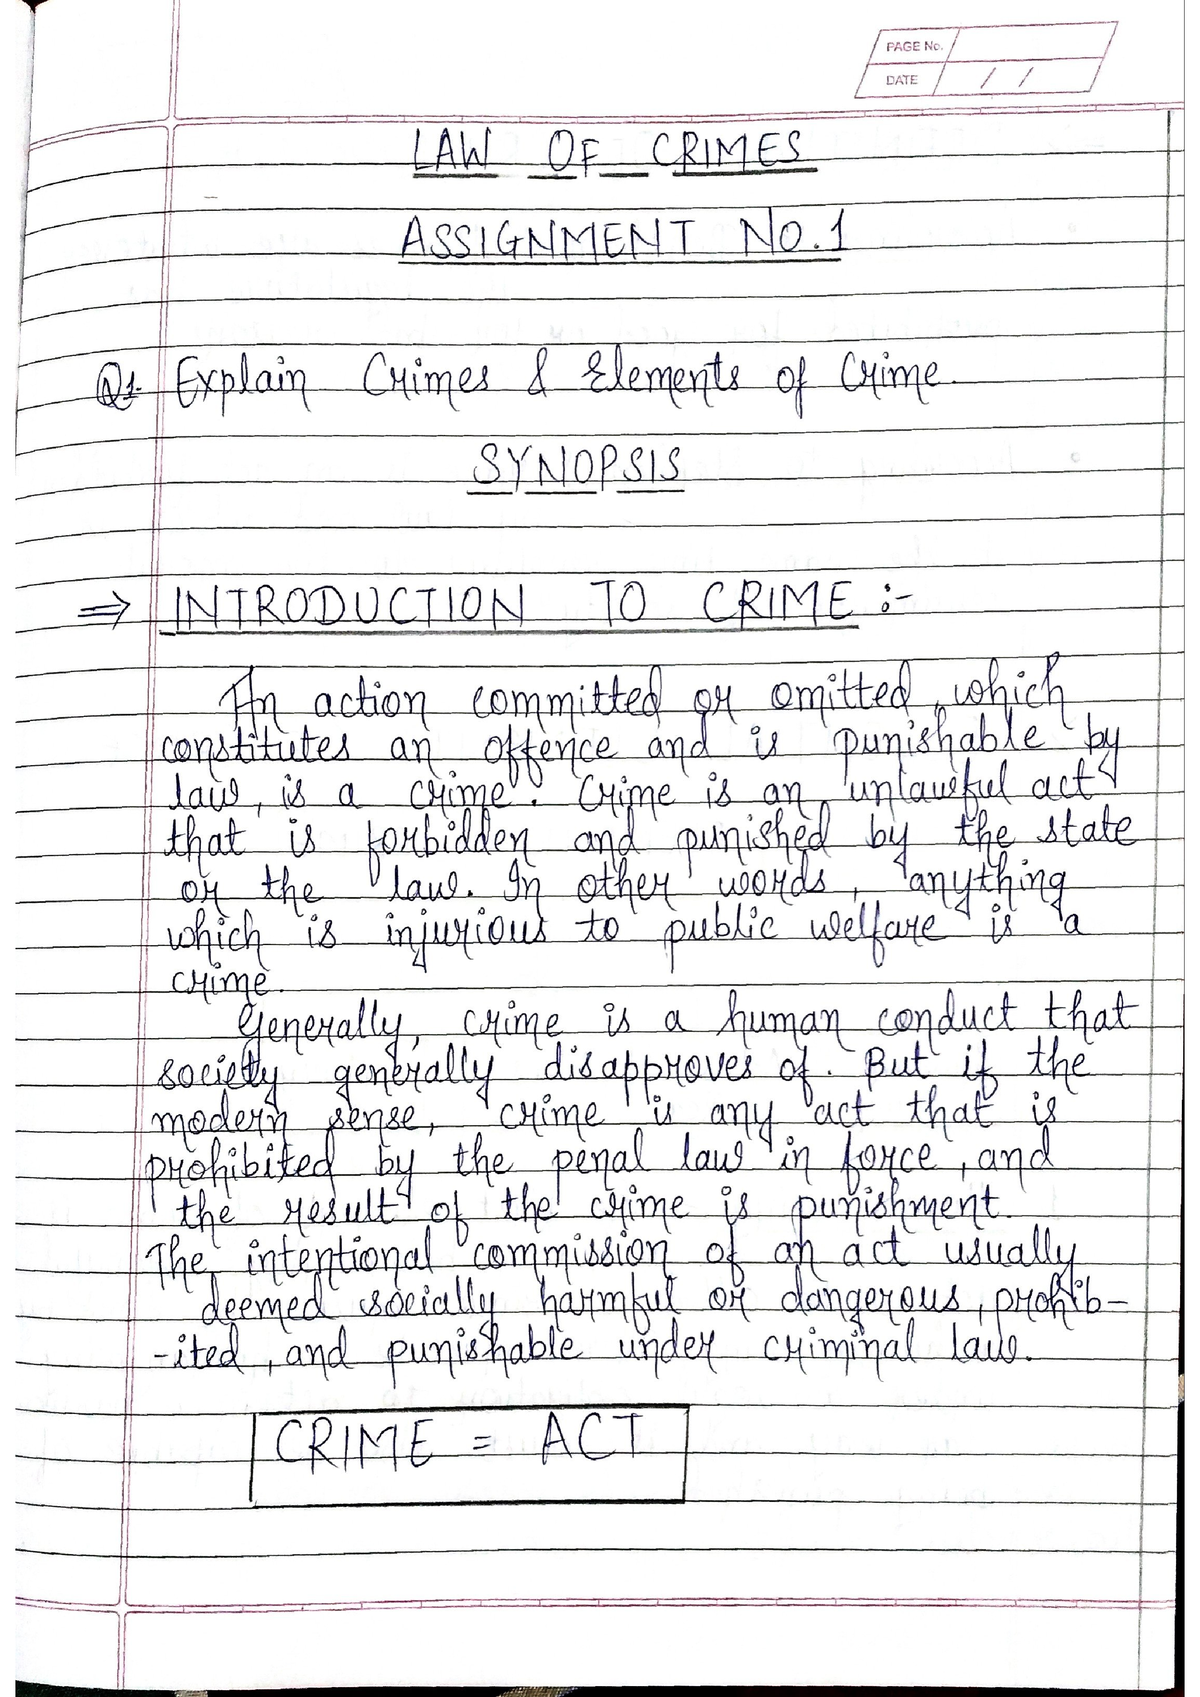 PAGE No.
DATE / /
LAW OF CRIMES
ASSIGNMENT NO.1
Q1. Explain Crimes & Elements of Crime.
SYNOPSIS
⇒ INTRODUCTION TO CRIME :-
An action committed or omitted, which
constitutes an offence and is punishable by
law, is a crime. Crime is an unlawful act
that is forbidden and punished by the state
or the law. In other words, anything
which is injurious to public welfare is a
crime.
Generally, crime is a human conduct that
society generally disapproves of. But if the
modern sense, crime is any act that is
prohibited by the penal law in force, and
the result of the crime is punishment.
The intentional commission of an act usually
deemed socially harmful or dangerous, prohib-
-ited, and punishable under criminal law.
CRIME = ACT